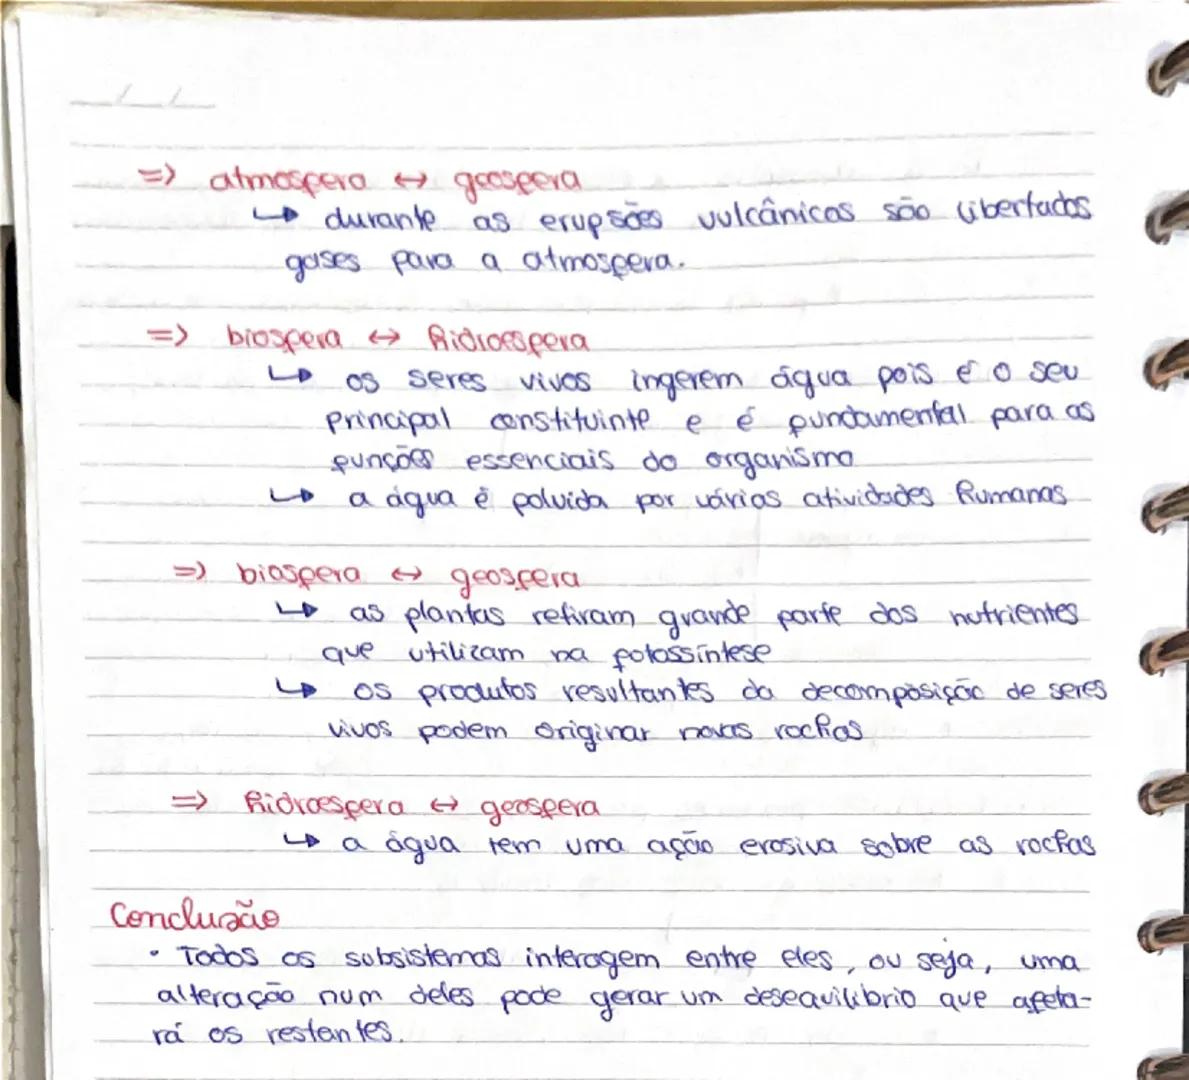 => atmosfera ↔ geosfera
↳ durante as erupsões vulcânicas são libertados
gases para a atmosfera.
=> biosfera ↔ hidroesfera
↳ os seres vivos ingerem água pois é o seu
principal constituinte e é fundamental para as
funções essenciais do organismo
↳ a água é poluida por várias atividades humanas
=> biosfera ↔ geosfera
↳ as plantas retiram grande parte dos nutrientes
que utilizam na fotossíntese
↳ os produtos resultantes da decomposição de seres
vivos podem originar novas rochas
=> hidroesfera ↔ geosfera
↳ a água tem uma ação erosiva sobre as rochas
Conclusão
• Todos os subsistemas interagem entre eles, ou seja, uma
alteração num deles pode gerar um desequilibrio que afeta-
rá os restantes.